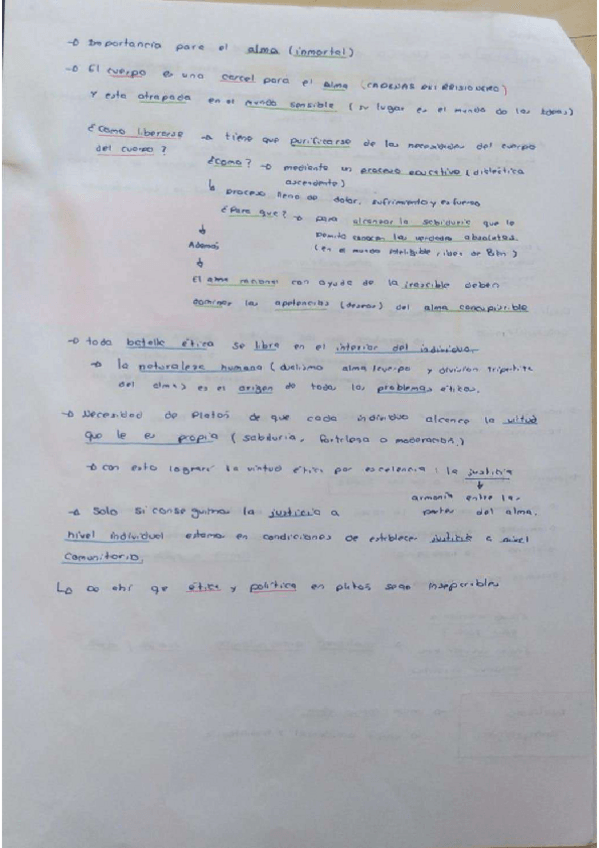 → Importancia para el alma (inmortal)
→ El cuerpo es una carcel para el alma (CADENAS DEL PRISIONERO)
y esta atrapada en el mundo sensible (su lugar es el mundo de las Ideas)
¿Como liberarse del cuerpo? → tiene que purificarse de las necesidades del cuerpo
¿Como? → mediante un proceso educativo (dialectica
ascendente)
↳ proceso lleno de dolor, sufrimiento y esfuerzo
¿Para que? → para alcanzar la sabiduria que le
permita conocer las verdades absolutas.
↓
Además
(en el mundo inteligible idea de Bien)
↓
El alma racional con ayuda de la irascible deben
domigar las apetencias (deseos) del alma concupiscible
→ toda batalla ética se libra en el interior del individuo.
→ la naturaleza humana (dualismo alma/cuerpo y división tripartita
del alma) es el origen de todos los problemas éticos.
→ Necesidad de Platón de que cada individuo alcance la virtud
que le es propia (sabiduría, fortaleza o moderación.)
→ con esto lograrí la virtud ética por excelencia: la justicia
↓
armonía entre las
partes del alma.
→ Solo si conseguimos la justicia a
nivel individual estamos en condiciones de establecer justicia a nivel
comunitario.
↳ De ahí que ética y política en platón sean inseparables